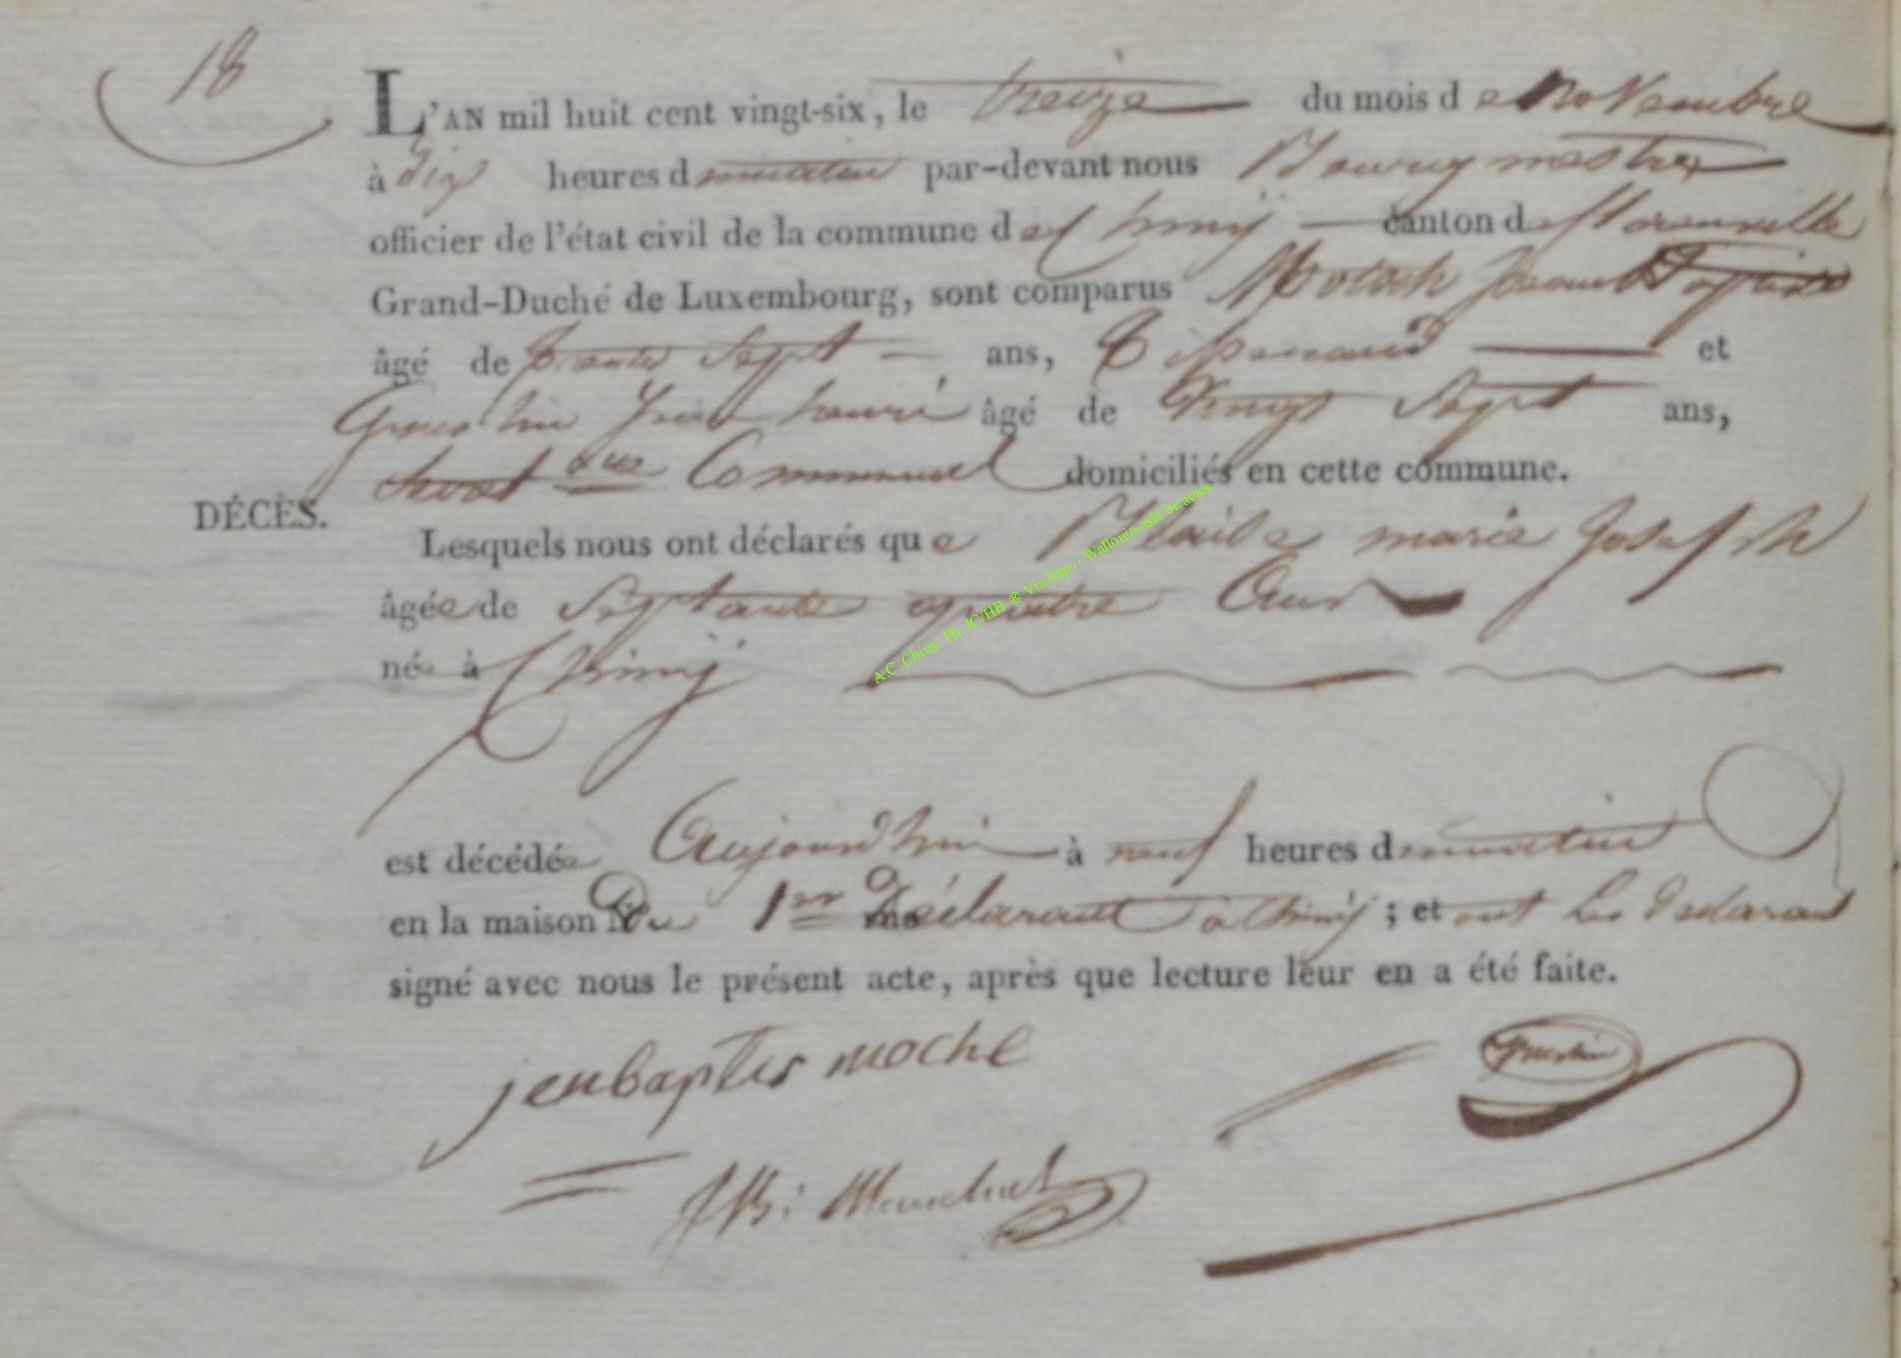 18
L'AN mil huit cent vingt-six, le treize du mois de Novembre
à dix heures du matin par-devant nous Bourgmestre
officier de l'état civil de la commune de Chiny canton de Florenville
Grand-Duché de Luxembourg, sont comparus Baptiste
âgé de trente Sept ans, et
âgé de Vingt Sept ans,
Communal domiciliés en cette commune.
DÉCÈS.
Lesquels nous ont déclarés que marie Joseph
âgée de Septante quatre Ans
née à Chiny
A.C. Chiny Ph. JC/HB ® Via http://Wallonia-asbl.be/actes
est décédée Aujourd'hui à neuf heures du matin
en la maison Du 1er Déclarant à Chiny ; et ont les Declarant
signé avec nous le présent acte, après que lecture leur en a été faite.
jenbaptis moche